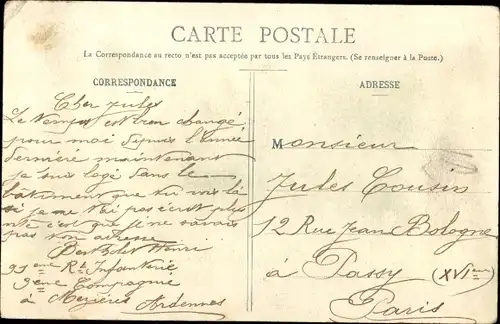 CARTE POSTALE
La Correspondance au recto n'est pas acceptée par tous les Pays Étrangers. (Se renseigner à la Poste.)
CORRESPONDANCE
Cher Jules
Le temps est bien changé
pour moi depuis l'année
dernière maintenant
je suis logé dans le
bâtiment que tu vois là
si je ne t'ai pas écrit plus
c'est que je ne savais
pas ton adresse
Berthelot Henri
91eme Rt Infanterie
9eme Compagnie
à Mezières Ardennes
ADRESSE
Monsieur
Jules Cousin
12 Rue Jean Bologne
à Passy
(XVIeme)
Paris